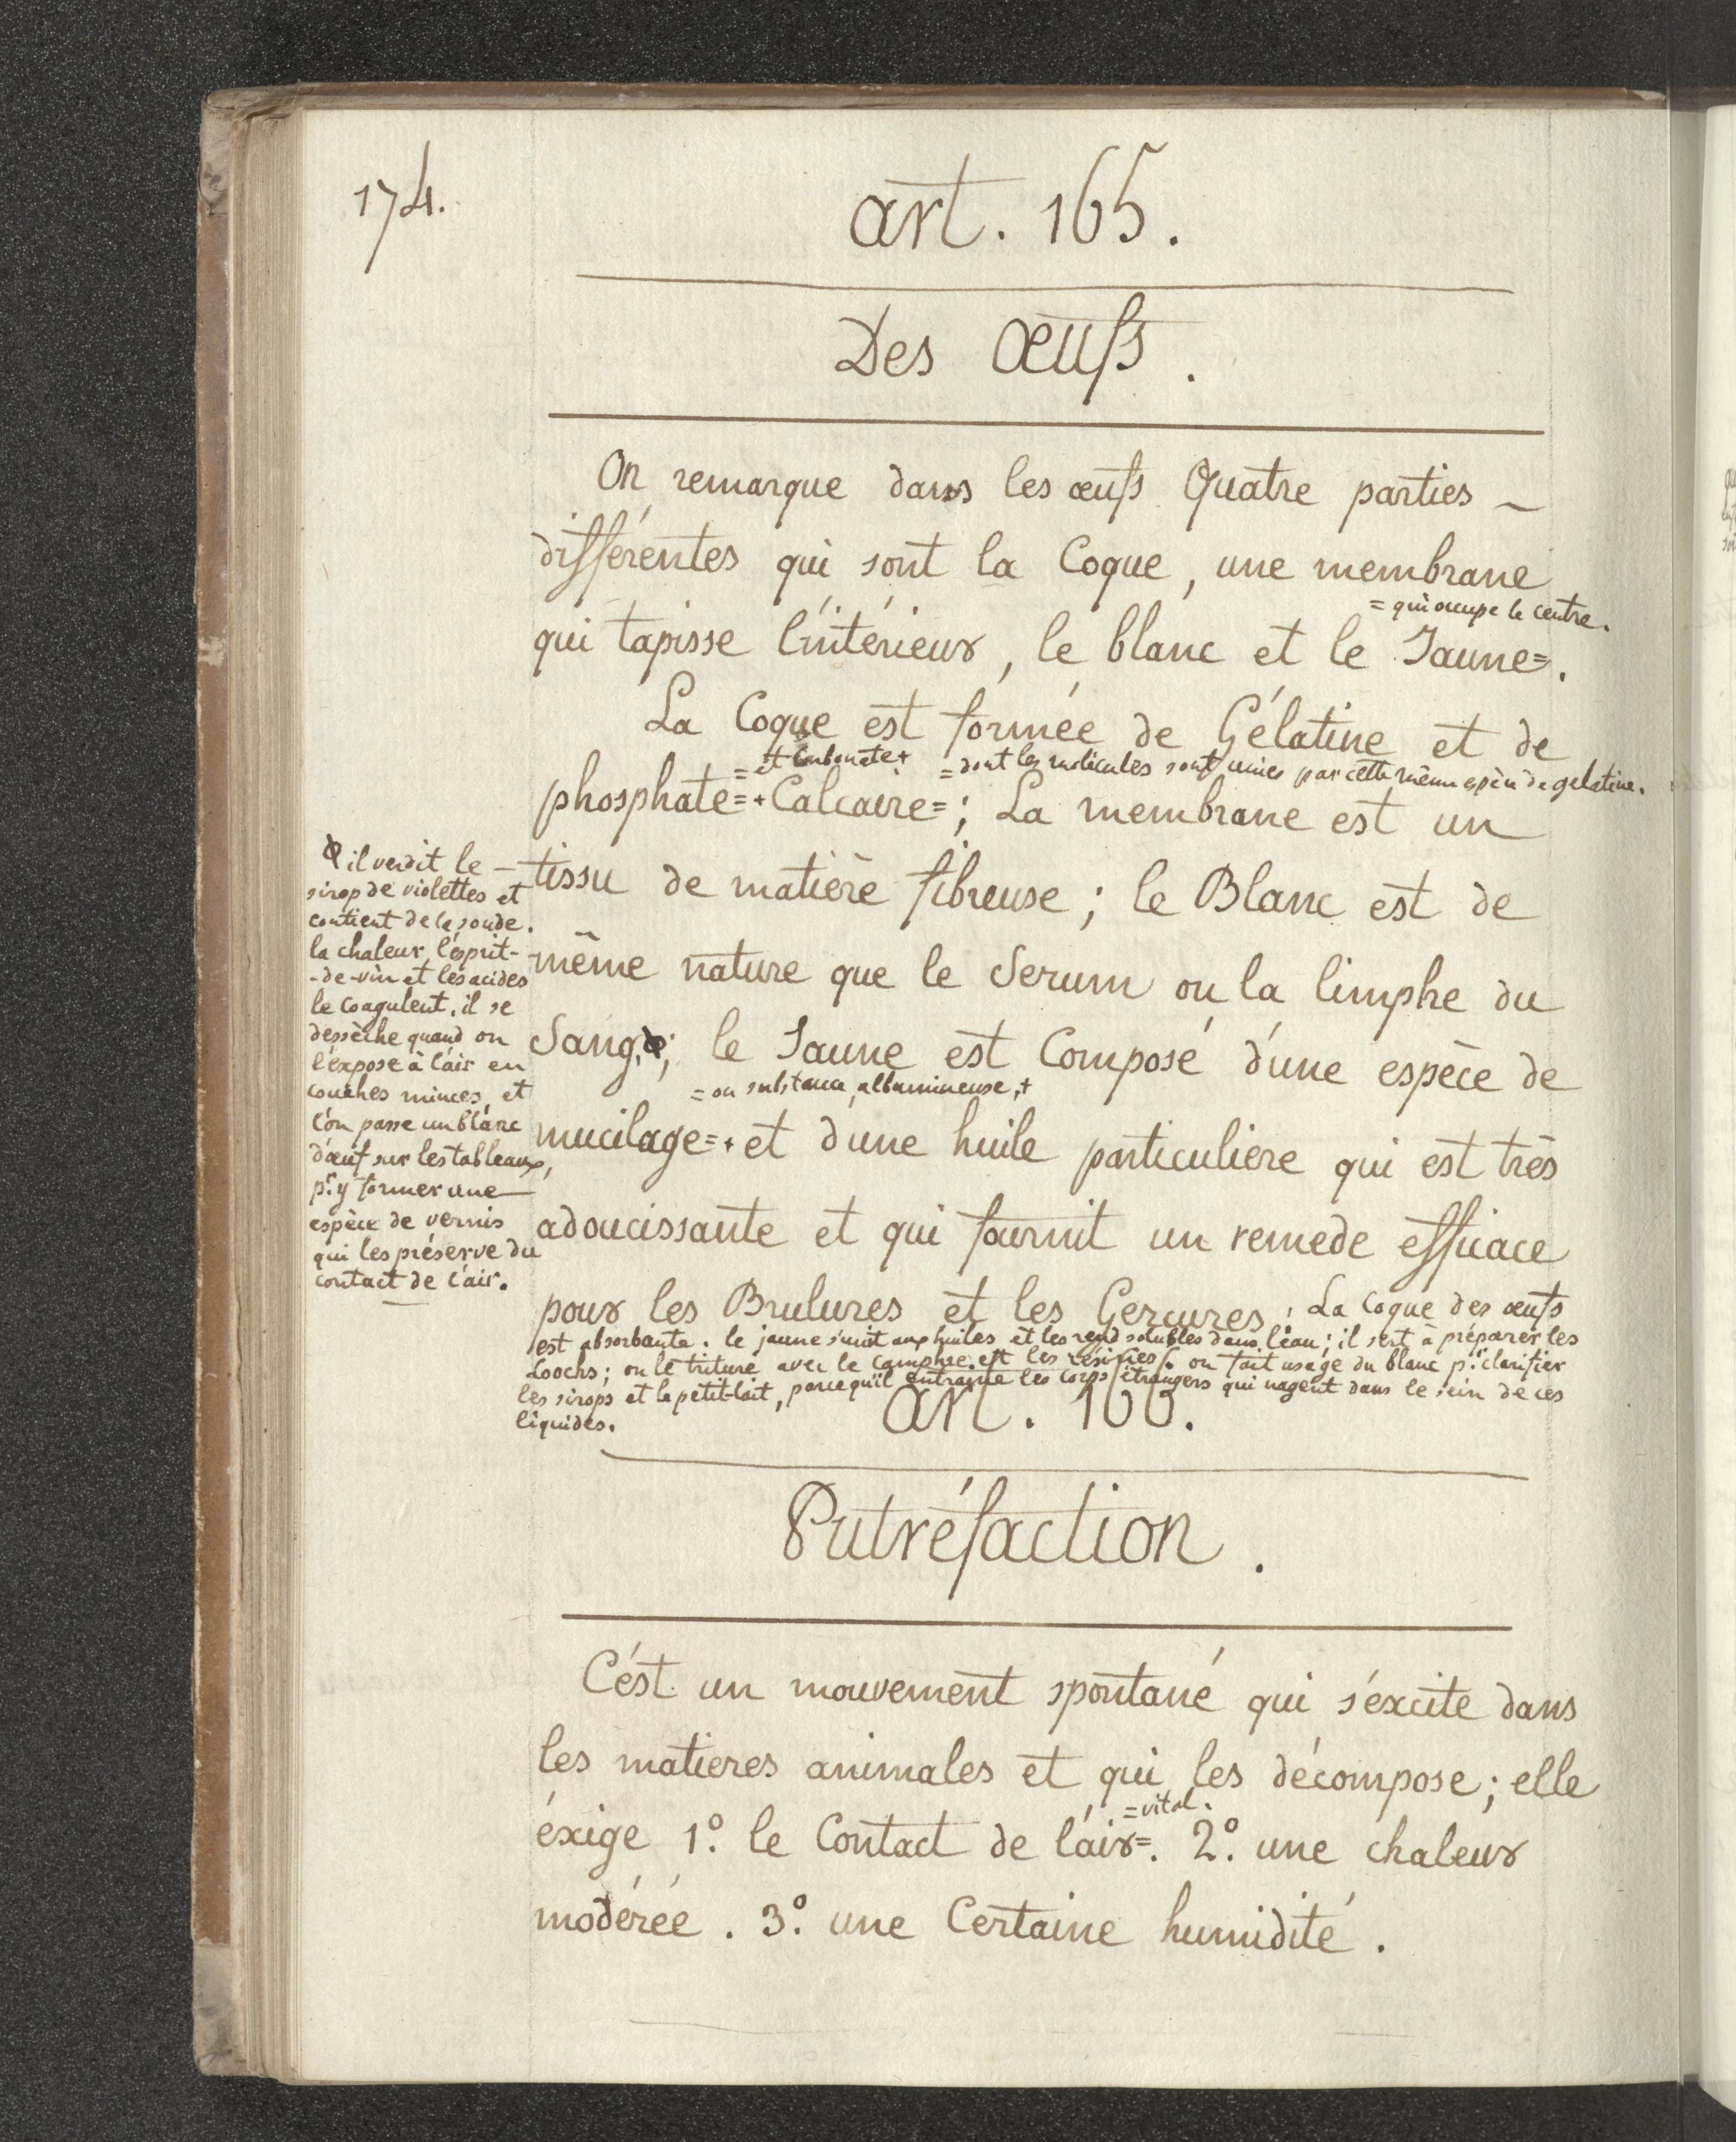 174.
art. 165.
Des Œufs.
On remarque dans les œufs Quatre parties –
différentes qui sont la Coque, une membrane
= qui occupe le centre.
qui tapisse l'intérieur, le blanc et le Jaune=.
La Coque est formée de Gélatine et de
= et Carbonate+ = dont les molécules sont unies par cette même espèce de gelatine.
phosphate=+Calcaire=; La membrane est un
tissu de matière fibreuse; le Blanc est de
même nature que le Serum ou la limphe du
Sang,φ; le Jaune est Composé d'une espèce de
= ou substance albumineuse,+
mucilage=+et d'une huile particuliere qui est très
adoucissante et qui fournit un remede efficace
pour les Brulures et les Gerçures. La coque des œufs
est absorbante. le jaune s'unit aux huiles et les rend solubles dans l'eau; il sert à préparer les
Loochs; on le triture avec le camphre et les résines. on fait usage du blanc pr. clarifier
les sirops et le petit-lait, parcequ'il entraine les corps étrangers qui nagent dans le sein de ces
liquides.
φ il verdit le –
sirop de violettes et
contient de la soude.
la chaleur, l'esprit-
-de-vin et les acides
le coagulent. il se
dessèche quand on
l'expose à l'air en
couches minces, et
l'on passe un blanc
d'œuf sur les tableaux,
pr. y former une
espèce de vernis
qui les préserve du
contact de l'air.
art. 166.
Putréfaction.
C'est un mouvement spontané qui s'éxcite dans
les matieres animales et qui les décompose; elle
= vital.
éxige 1º. le Contact de l'air=. 2º. une chaleur
modérée. 3º. une Certaine humidité.